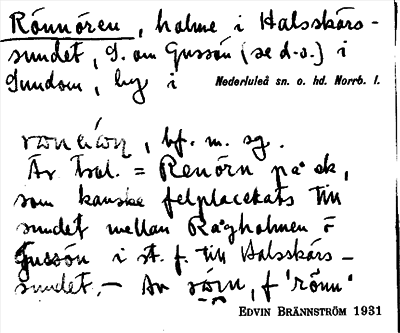 Rönnören, holme i Halsskärs-
sundet, S. om Gussön (se d.o.) i
Sundom, by i Nederluleå sn. o. hd. Norrb. l.
bf. m. sg.
Är trol. = Renörn på ek,
som kanske felplacerats till
sundet mellan Rågholmen o
Gussön i st. f. till Halsskärs-
sundet. – Av f 'rönn'
EDVIN BRÄNNSTRÖM 1931